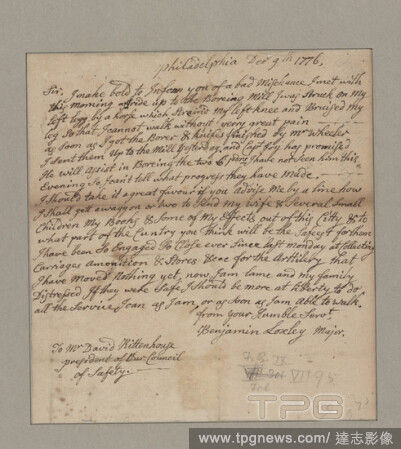 Philadelphia Decr 9th 1776,
Sir, I make bold to Inform you of a bad Mischance I met with
this morning a ride up to the Boreing Mill I was Struck on my
left legg by a horse which Strain'd my left knee and Bruised my
leg So that I cannot walk without very great pain
as soon as I got the Borer & knives finished by Mr Wheeler
I sent them Up to the Mill Yesterday, and Capt Joy has promised
He will Assist in Boreing the two 6 I have not seen him this
Evening So Can't tell what progress they have made.
I should take it a great favour if you advise Me by a line how
I Shall get a wagon or two to Send my wife & Several Small
Children My Books & Some of My Effects out of this City & to
what part of the Cuntry you think will be the Safest for them
I have been So Engaged So Close ever Since last Monday at Colecting
Carriages Amonition & Stores &c for the Artilery that
I have Moved Nothing yet, now I am lame and my family
Distressed If they were Safe I Should be more at liberty to do
all the Service I can as I am, or as soon as I am Able to walk.
from your Humble Servt
Benjamin Loxley Major.
To Mr David Rittenhouse
president of Our Council
of Safety.
VII 95
TPG
www.tpgnews.com / 達志影像